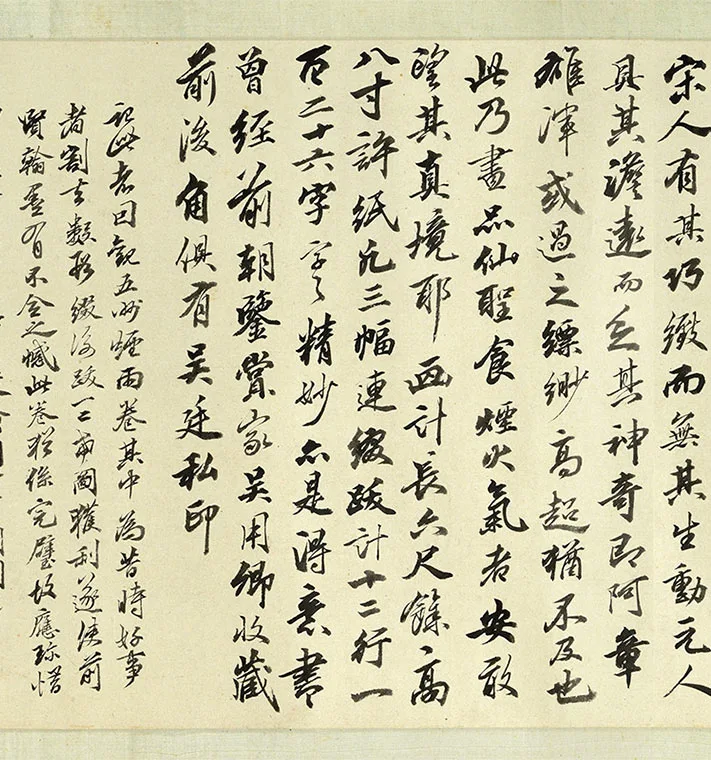 宋人有其巧緻而無其生動元人
具其澹遠而乏其神奇即阿章
雄渾或過之縹緲高超猶不及也
此乃畫品仙聖食煙火氣者安敢
望其真境耶 畫計長六尺餘高
八寸許紙凡三幅連綴跋計十二行一
百二十六字字〻精妙亦是得意書
曾經前朝鑒賞家吴用卿收藏
前後角俱有吴廷私印
記此者因觀五洲煙雨卷其中為昔時好事
者割去數彩綴後跋一二希圖獲利遂使前
賢翰墨有不全之憾此卷猶係完璧故應珍惜